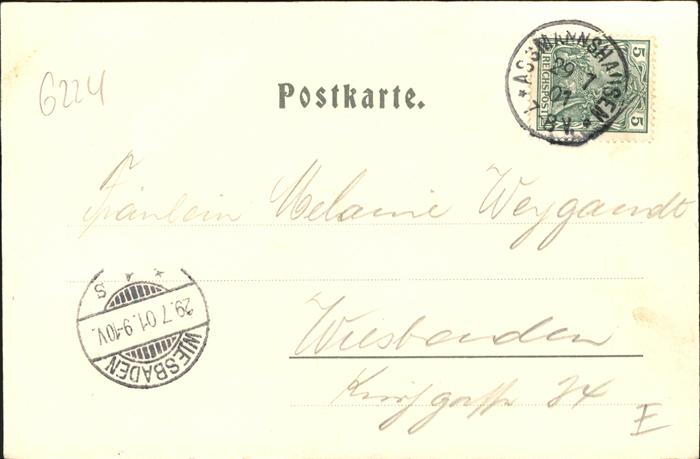 6224
Postkarte.
ASSMANNSHAUSEN
29 7
01
7-8V.
5 REICHSPOST 5
Fräulein Melanie Weygandt
Wiesbaden
34
E
WIESBADEN
29.7.01.9-10V.
* * S